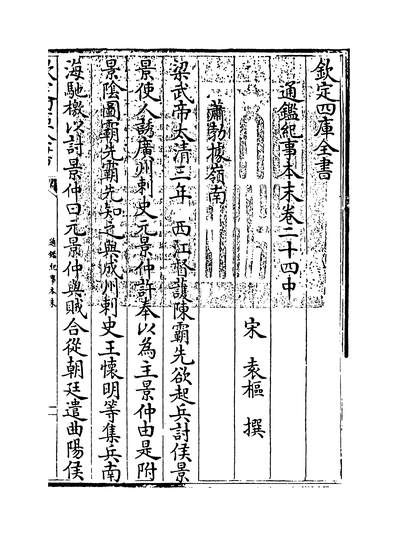 欽定四庫全書
通鑑紀事本末卷二十四中
宋 袁樞 撰
蕭勃據嶺南
梁武帝太清三年 西江督護陳霸先欲起兵討侯景
景使人誘廣州刺史元景仲許奉以為主景仲由是附
景陰圖霸先霸先知之與成州刺史王懷明等集兵南
海馳檄以討景仲曰元景仲與賊合從朝廷遣曲陽侯
通鑑紀事本末